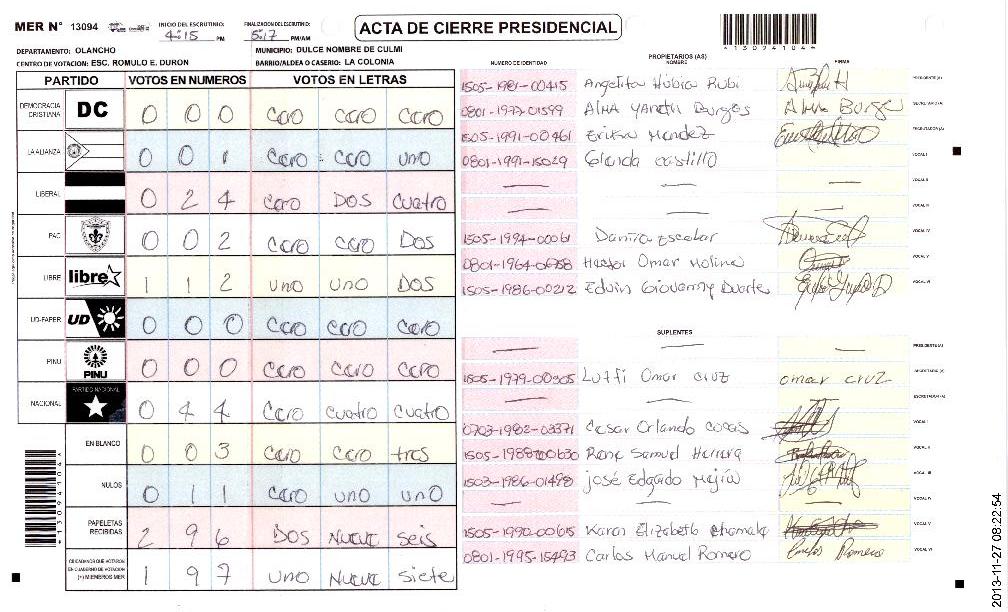 MER N° 13094
INICIO DEL ESCRUTINIO: 4:15 PM
FINALIZACION DEL ESCRUTINIO: 5:17 PM/AM
ACTA DE CIERRE PRESIDENCIAL
*1309410*
DEPARTAMENTO: OLANCHO
MUNICIPIO: DULCE NOMBRE DE CULMI
CENTRO DE VOTACION: ESC. ROMULO E. DURON
BARRIO/ALDEA O CASERIO: LA COLONIA
PARTIDO VOTOS EN NUMEROS VOTOS EN LETRAS
DEMOCRACIA CRISTIANA DC 0 0 0 Cero cero cero
LA ALIANZA 0 0 1 Cero cero uno
LIBERAL 0 2 4 Cero DOS cuatro
PAC 0 0 2 Cero cero Dos
LIBRE libre 1 1 2 uno uno Dos
UD-FAPER UD 0 0 0 cero cero cero
PINU PINU 0 0 0 cero cero cero
NACIONAL PARTIDO NACIONAL 0 4 4 Cero cuatro cuatro
EN BLANCO 0 0 3 Cero cero tres
NULOS 0 1 1 cero uno uno
PAPELETAS RECIBIDAS 2 9 6 DOS Nueve seis
CIUDADANOS QUE VOTARON EN CUADERNO DE VOTACION (+) MIEMBROS MER 1 9 7 uno Nueve siete
NUMERO DE IDENTIDAD PROPIETARIOS (AS) NOMBRE FIRMA
1505-1981-00415 Angelita Nubia Rubi PRESIDENTE (A)
0801-1979-01599 Alma Yaneth Borges Alma Borge SECRETARIO (A)
1505-1991-00461 Erika Mendez ESCRUTADOR (A)
0801-1991-15029 Glenda castillo VOCAL I
VOCAL II
VOCAL III
1505-1994-00061 Danira Escobar VOCAL IV
0801-1964-06758 Hector Omar Molina VOCAL V
1505-1986-00212 Edvin Giovanny Duarte VOCAL VI
SUPLENTES
PRESIDENTE (A)
1505-1979-00305 Luffi Omar cruz omar cruz SECRETARIO (A)
ESCRUTADOR (A)
0703-1982-03371 Cesar Orlando VOCAL I
1505-1988-00630 Rene Samuel Herrera VOCAL II
1503-1986-01498 josé Edgardo Mejía VOCAL III
VOCAL IV
1505-1990-00615 Karen Elizabeth VOCAL V
0801-1995-15493 Carlos Manuel Romero Carlos Romero VOCAL VI
2013-11-27 08:22:54